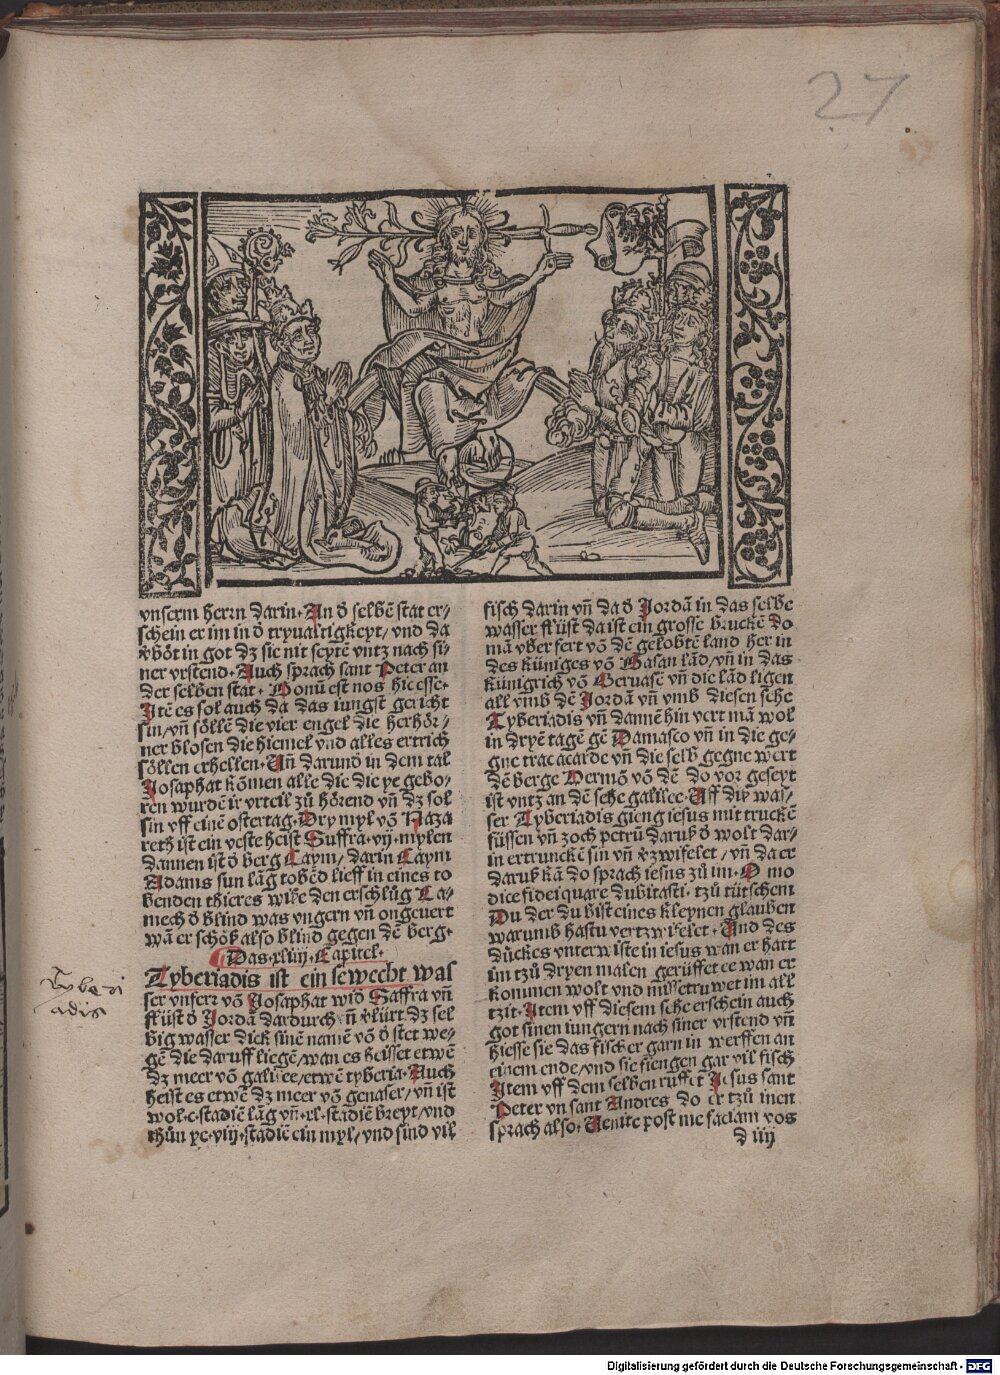 27
vnserm herrn darin. An d̕ selbē stat er⸗
schein er im in d̕ tryualtigkeyt/ vnd da
v̕bōt in got dz sie nit seytē vntz nach si⸗
ner vrstend. Auch sprach sant Peter an
der selben stat. Bonū est nos hic esse.
Itē es sol auch da das iungst gericht
sin/ vñ söllē die vier engel die herhör⸗
ner blosen die hiemel vnd alles ertrich
söllen erhellen. Vñ darund in dem tal
Josaphat kōmen alle die die ye gebo⸗
ren wurdē ir vrteil zů hörend vñ dz sol
sin vff einē ostertag. Dry myl vō Naza
reth ist ein veste heist Suffra. vij. mylen
dannen ist d̕ berg Caym/ darin Caym
Adams sun lāg tobēd lieff in eines to
benden thieres wise den erschlůg La⸗
mech d̕ blind was vngern vñ ongeuert
wā er schōß also blind gegen dē berg.
Das .xliiij. Capitel.
Tyberiadis ist ein sewecht was
ser vnferr vō Josaphat wid̕ Saffra vñ
flüst d̕ Jordā dardurch vñ v̕lürt dz sel
big wasser dick sinē namē vō d̕ stet we⸗
gē die daruff liegē/ wan es heisset etwē
dz meer vō galilee/ etwē tyberia. Auch
heist es etwē dz meer vō genaser/ vñ ist
wol .c. stadiē lāg vñ .xl. stadiē breyt/ vnd
thůn ye .viij. stadiē ein myl/ vnd sind vil
Tyberi
adis
fisch darin vñ da d̕ Jordā in das selbe
wasser flüst da ist ein grosse bruckē do
mā vber fert vō dē gelobtē land her in
des küniges vō Basan lād/ vñ in das
künigrich vō Geruasē vñ die lād ligen
all vmb dē Jordā vñ vmb diesen sehe
Tyberiadis vñ dannē hin vert mā wol
in dryē tagē gē Damasco vñ in die ge⸗
gne tracacarde vñ die selb gegne wert
dē berge Hermō vō dē do vor geseyt
ist vntz an dē sehe galilee. Uff diß was⸗
ser Tyberiadis gieng iesus mit truckē
füssen vñ zoch petrū daruß d̕ wolt dar⸗
in ertrunckē sin vñ v̕zwifelet/ vñ da er
daruß kā do sprach iesus zů im. O mo
dice fidei quare dubitasti. tzů tütschem
Du der du bist eines kleynen glauben
warumb hastu vertzwifelet. Und des
dückes vnterwiste in iesus wan er hatt
im tzů dryen malen gerüffet ee wan er
kommen wolt vnd misstruwet im all
tzit. Item vff diesem sehe erschein auch
got sinen iungern nach siner vrstend vñ
hiesse sie das fischer garn in werffen an
einem ende/ vnd sie fiengen gar vil fisch
Item vff dem selben rufft Jesus sant
Peter vn sant Andres do er tzů inen
sprach also. Uenite post me faciam vos
d iiij
Digitalisierung gefördert durch die Deutsche Forschungsgemeinschaft - DFG